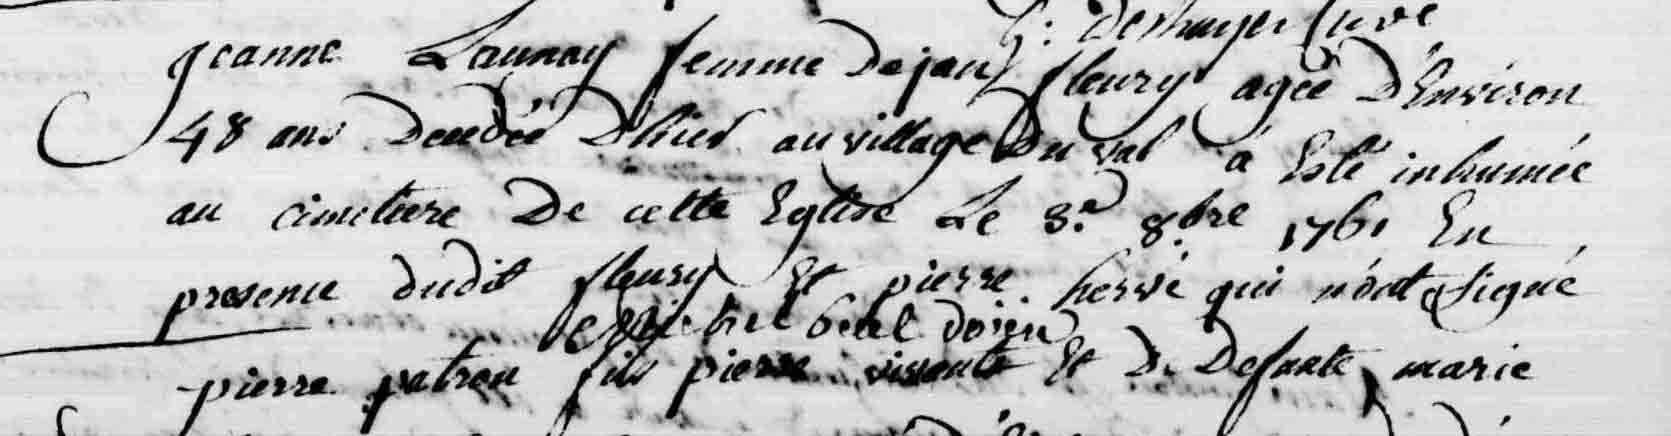 Jeanne Launay femme De jan fleury agée D'Environ
48 ans Decedée D'hier au village Du val a Esté inhumée
au cimetiere De cette Eglise Le 3.e 8.bre 1761 En
presence dudit fleury Et pierre hervé qui n'ont signé
doien
pierre patron fils pierre vivant Et De Defunte marie